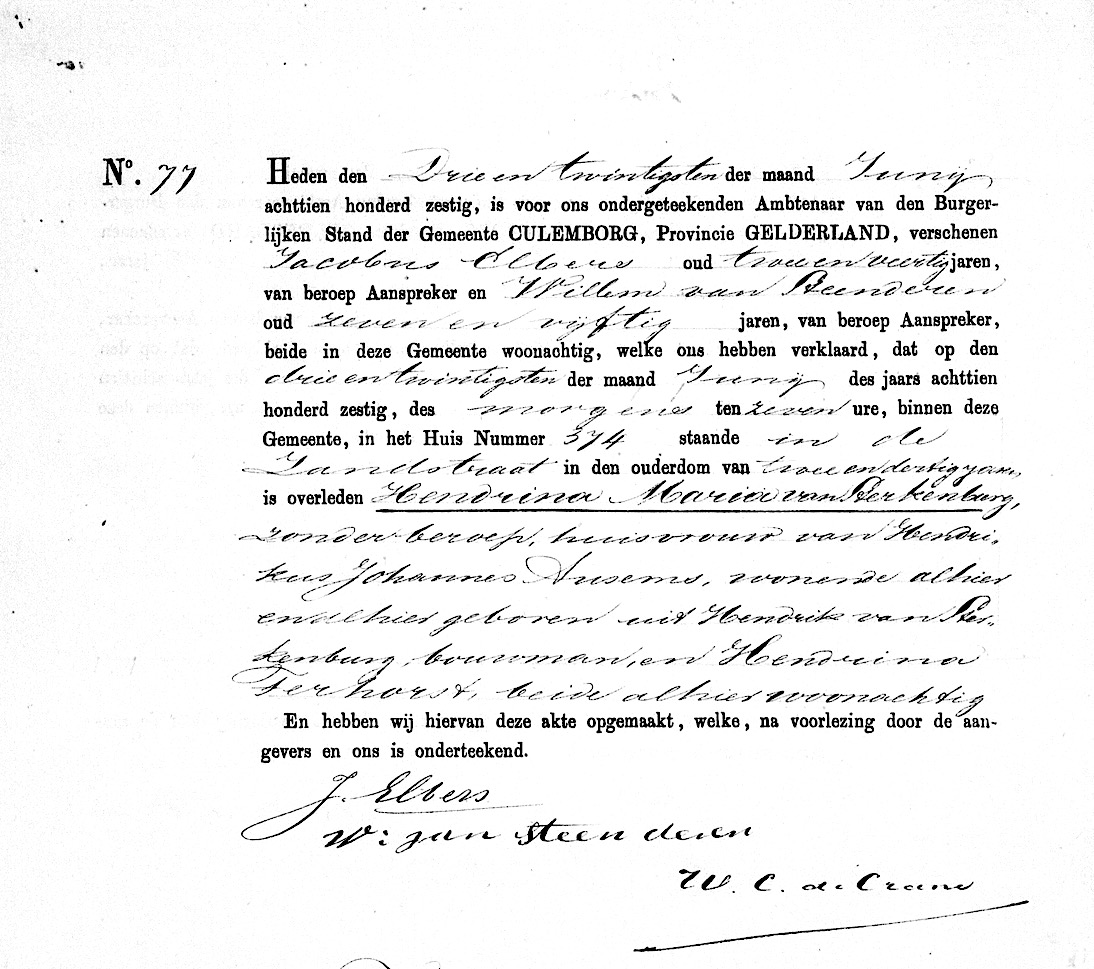 No. 77
Heden den Drie en twintigsten der maand Junij
achttien honderd zestig, is voor ons ondergeteekenden Ambtenaar van den Burger-
lijken Stand der Gemeente CULEMBORG, Provincie GELDERLAND, verschenen
Jacobus Elbers oud twee en veertig jaren,
van beroep Aanspreker en Willem van Steenderen
oud zeven en vijftig jaren, van beroep Aanspreker,
beide in deze Gemeente woonachtig, welke ons hebben verklaard, dat op den
drie en twintigsten der maand Junij des jaars achttien
honderd zestig, des morgens ten zeven ure, binnen deze
Gemeente, in het Huis Nummer 374 staande in de
Zandstraat in den ouderdom van twee en dertig jaren,
is overleden Hendrina Maria van Sterkenburg,
zonder beroep, huisvrouw van Hendri-
kus Johannes Ansems, wonende alhier
en alhier geboren uit Hendrik van Ster-
kenburg, bouwman, en Hendrina
Terhorst, beide alhier woonachtig
En hebben wij hiervan deze akte opgemaakt, welke, na voorlezing door de aan-
gevers en ons is onderteekend.
J. Elbers
W: van Steenderen
W. C. de Crane